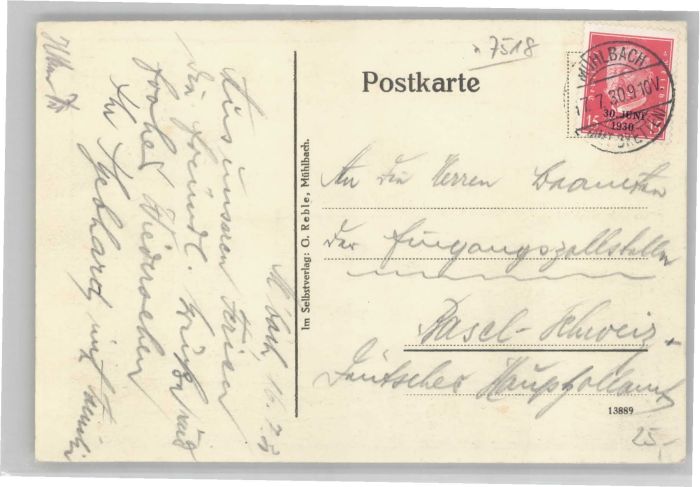 7518
Postkarte
MÜHLBACH
7.30.9-10V
15
30. JUNI
1930
An die Herren Beamten
der Eingangszollstellen
Basel-Schweiz
Deutsches Hauptzollamt
13889
25.-
Im Selbstverlag: O. Reble, Mühlbach.
M'bach, 16.7.30
Aus unseren Ferien
die freundl. Grüße und
frohes Wiedersehen
Ihr Gebhard mit Familie